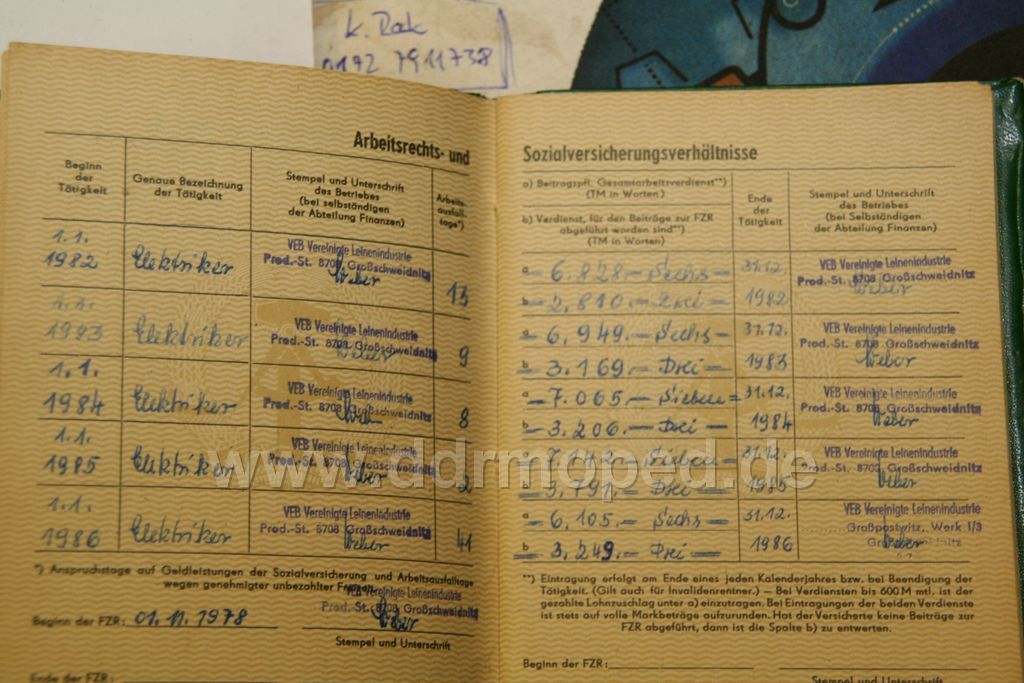 K. Rak
0172 7911738
Arbeitsrechts- und
Beginn der Tätigkeit
Genaue Bezeichnung der Tätigkeit
Stempel und Unterschrift des Betriebes (bei selbständigen der Abteilung Finanzen)
Arbeits-ausfall-tage*)
1.1. 1982 Elektriker VEB Vereinigte Leinenindustrie Prod.-St. 8708 Großschweidnitz Weber 13
1.1. 1983 Elektriker VEB Vereinigte Leinenindustrie Prod.-St. 8708 Großschweidnitz Weber 9
1.1. 1984 Elektriker VEB Vereinigte Leinenindustrie Prod.-St. 8708 Großschweidnitz Web 8
1.1. 1985 Elektriker VEB Vereinigte Leinenindustrie Prod.-St. 8708 Großschweidnitz Weber 2
1.1. 1986 Elektriker VEB Vereinigte Leinenindustrie Prod.-St. 8708 Großschweidnitz Weber 41
*) Anspruchstage auf Geldleistungen der Sozialversicherung und Arbeitsausfalltage
wegen genehmigter unbezahlter
VEB Vereinigte Leinenindustrie
Prod.-St. 8708 Großschweidnitz
Weber
Beginn der FZR: 01.11.1978
Stempel und Unterschrift
Ende der FZR:
Sozialversicherungsverhältnisse
a) Beitragspfl. Gesamtarbeitsverdienst**)
(TM in Worten)
b) Verdienst, für den Beiträge zur FZR
abgeführt worden sind**)
(TM in Worten)
Ende der Tätigkeit
Stempel und Unterschrift des Betriebes (bei Selbständigen der Abteilung Finanzen)
a – 6.828.– Sechs – 31.12. VEB Vereinigte Leinenindustrie
b – 2.810.– Drei – 1982 Prod.-St. 8708 Großschweidnitz Weber
a – 6.949.– Sechs – 31.12. VEB Vereinigte Leinenindustrie
b – 3.169.– Drei – 1983 Prod.-St. 8708 Großschweidnitz Weber
a – 7.065.– Sieben – 31.12. VEB Vereinigte Leinenindustrie
b – 3.206.– Drei – 1984 Prod.-St. 8708 Großschweidnitz Weber
a – 7.142.– Sieben – 31.12. VEB Vereinigte Leinenindustrie
b – 3.791.– Drei – 1985 Prod.-St. 8708 Großschweidnitz Weber
a – 6.105.– Sechs – 31.12. VEB Vereinigte Leinenindustrie
b – 3.249.– Drei – 1986 Großpostwitz, Werk 1/3 Weber
**) Eintragung erfolgt am Ende eines jeden Kalenderjahres bzw. bei Beendigung der
Tätigkeit. (Gilt auch für Invalidenrentner.) – Bei Verdiensten bis 600 M mtl. ist der
gezahlte Lohnzuschlag unter a) einzutragen. Bei Eintragungen der beiden Verdienste
ist stets auf volle Markbeträge aufzurunden. Hat der Versicherte keine Beiträge zur
FZR abgeführt, dann ist die Spalte b) zu entwerten.
Beginn der FZR:
Stempel und Unterschrift
www.ddrmoped.de